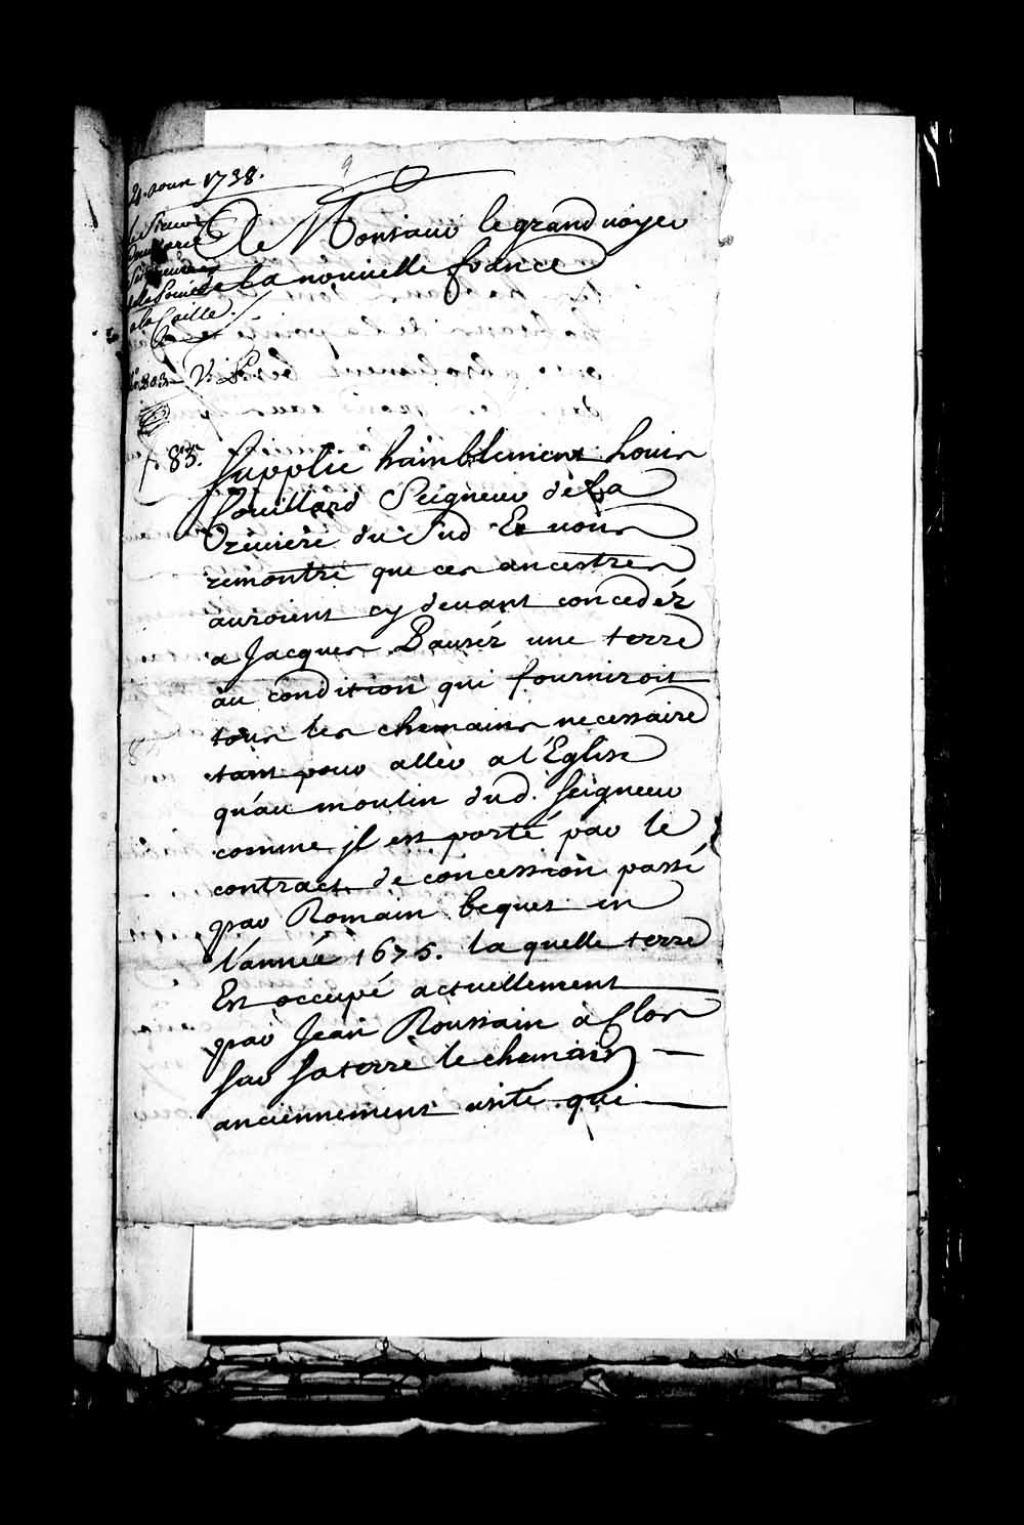 aoust 1738.
A Monsieur le grand voyer
de la nouvelle france
le Sieur
Seigneur
a la Caille
No 203
V. L.
83.
Supplie humblement Louis
Couillard Seigneur de La
Riviere du Sud Et vous
remontre que ces ancestres
auroient cy devant concedéz
a Jacques Bauséz une terre
au condition qui fourniroit
tous les chemains necessaire
tant pour aller a l'Eglise
qu'au moulin dud. Seigneur
comme jl est porté par le
contract de concession passé
par Romain bequet en
l'année 1675. la quelle terre
Est occupé actuellement
par Jean Roussain a Clos
sur sa terre le chemain
anciennement usité qui